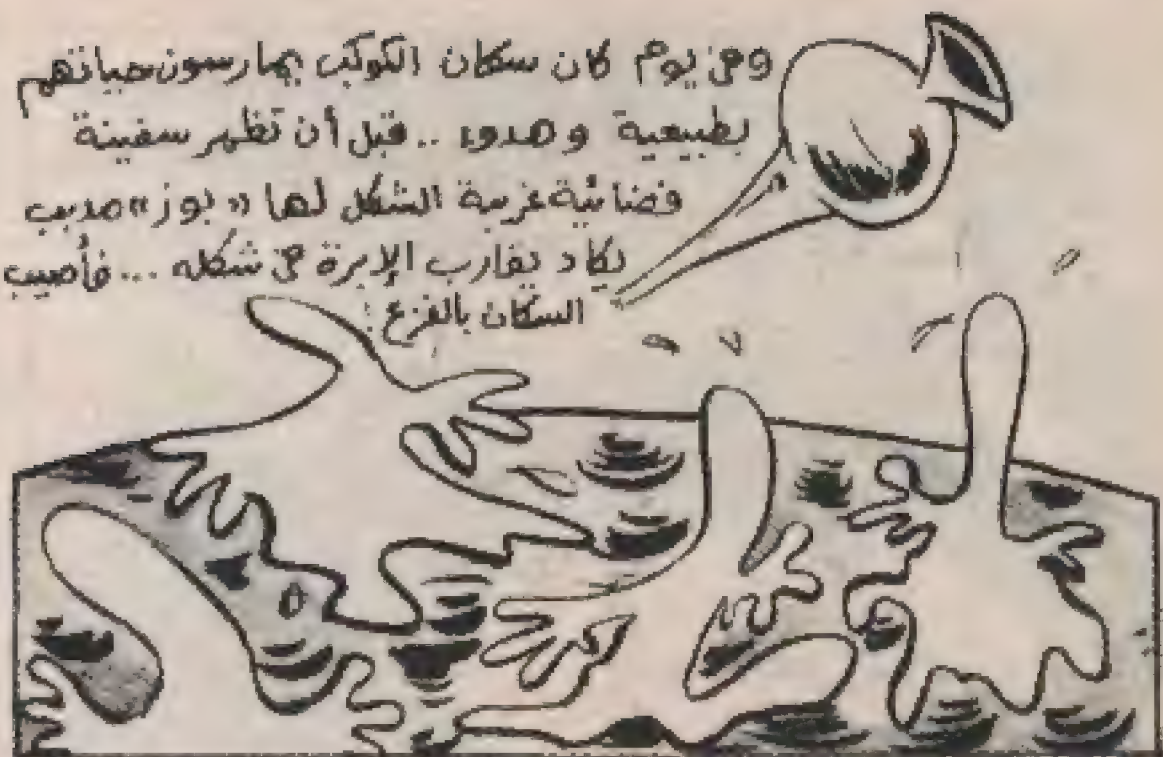 وفى يوم كان سكان الكوكب يمارسون حياتهم
بطبيعية وهدوء .. قبل أن تظهر سفينة
فضائية غريبة الشكل لها «بوز» مدبب
يكاد يقارب الإبرة فى شكله ... فأصيب
السكان بالفزع :